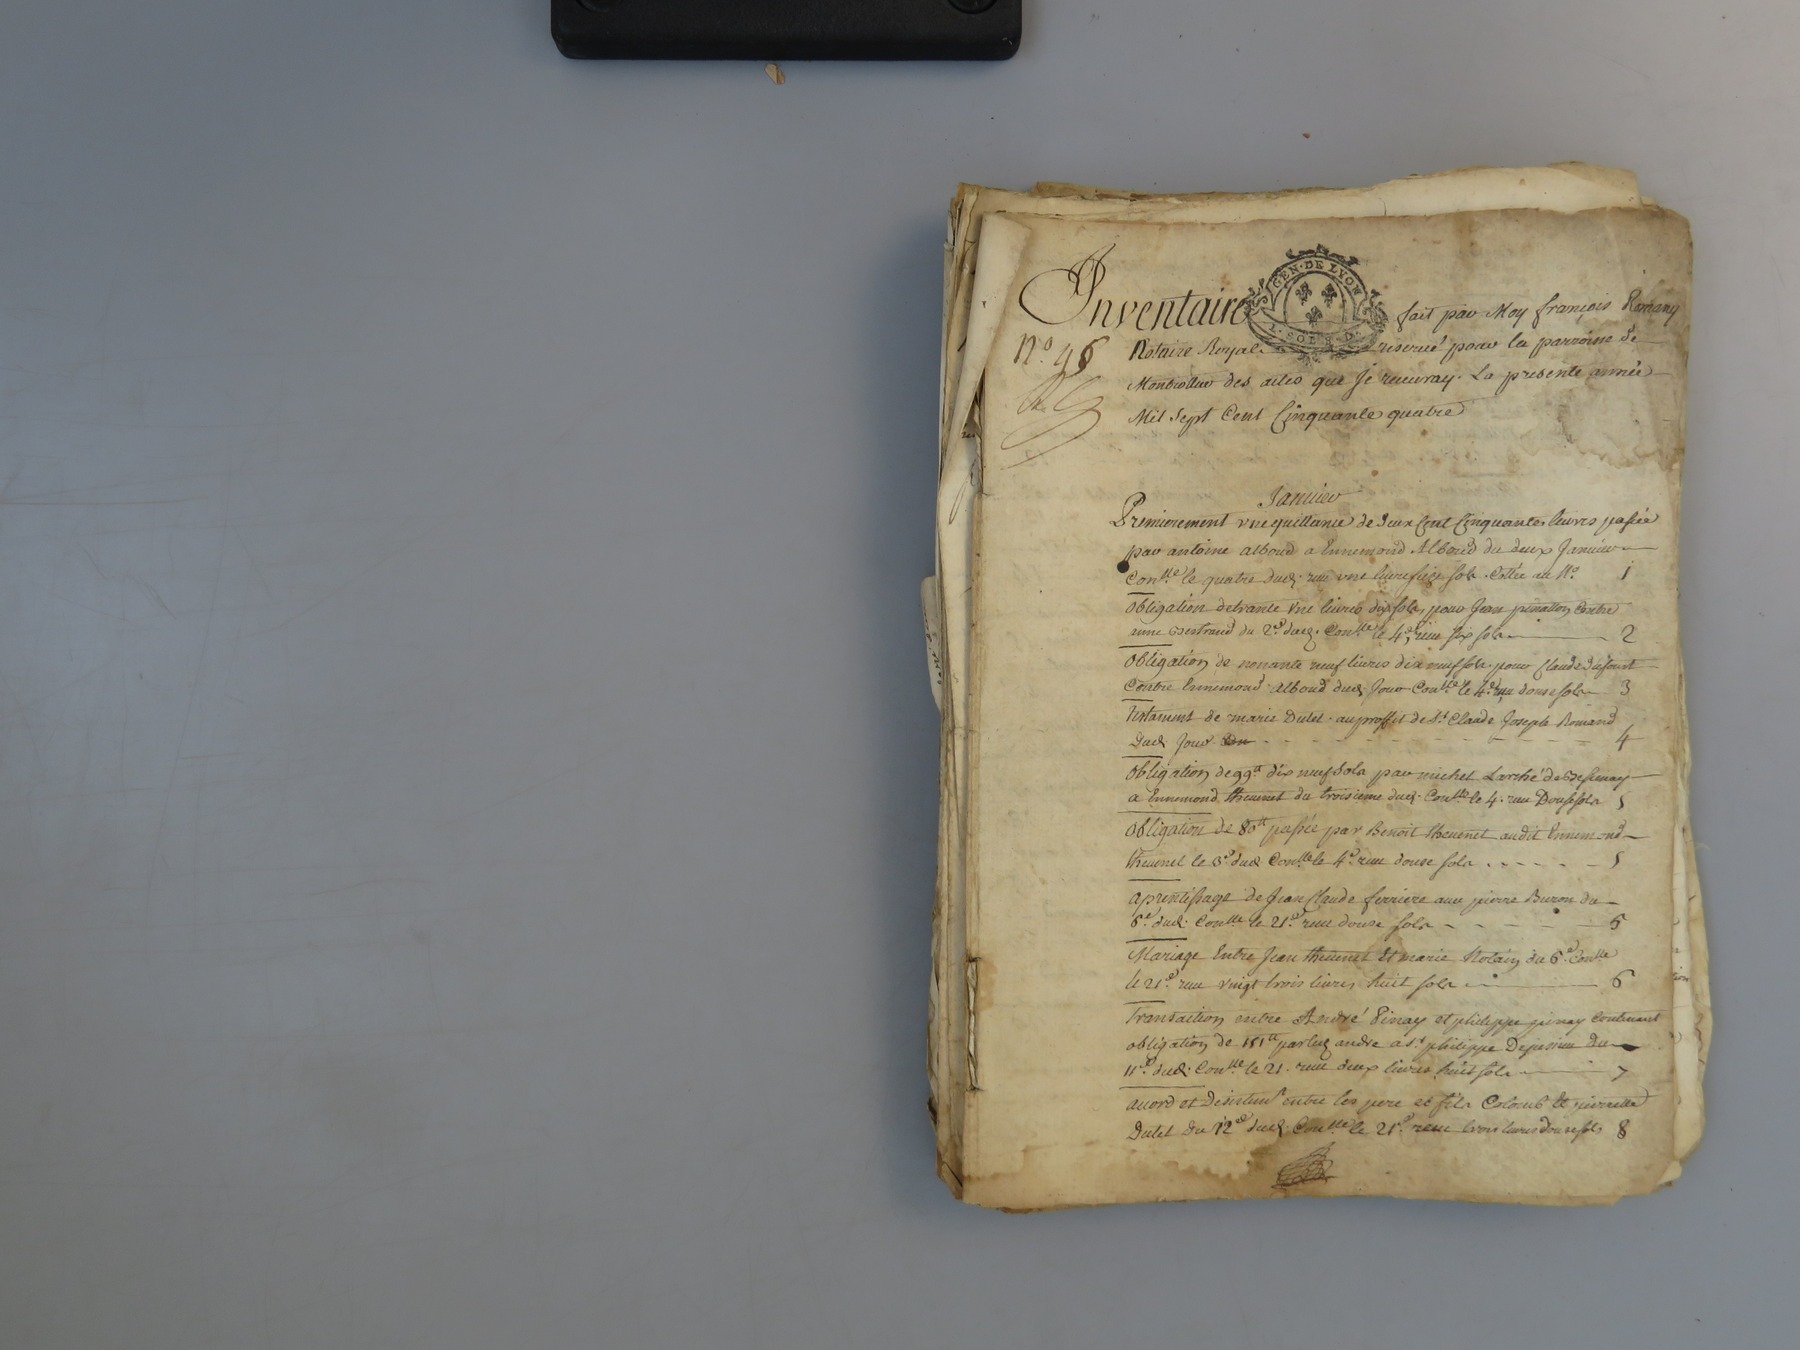 Inventaire fait par Moy françois Romany
GEN·DE LYON
N.o 46
Notaire Royal reservé pour la parroisse de
Montrottier des actes que Je recevray. La presente année
Mil Sept Cent Cinquante quatre
Janvier
Premierement une quittance de deux Cent Cinquante livres passée
par antoine alboud a Ennemond Alboud du deux Janvier
Conlle le quatre dud. reçu une livre seize sols. Cottée au No. 1
Obligation de trante une livres dix sols, pour Jean pinatton Contre
anne Bertraud du 2.d dud. Conlle le 4.e, reçu six sols 2
Obligation de nonante neuf livres dix neuf sols pour Claude dufourt
Contre Ennemond Alboud dud. Jour Conlle le 4.e reçu douse sols 3
Testament de marie Dutel au proffit de Sr Claude Joseph Romand
Dud. Jour 4
Obligation de 99tt dix neuf sols par michel Larché de
a Ennemond thevenet du troisieme dud. Conlle le 4. reçu Douse sols 5
Obligation de 80tt passée par Benoit thevenet audit Ennemond
thevenet le 3.e dud. Conlle le 4.e reçu douse sols 5
aprentissage de Jean Claude ferriere aux pierre Buron du
6.e dud. Conlle le 21.e reçu douse sols 6
Mariage Entre Jean thevenet Et marie du 6.e Conlle
le 21.e reçu vingt trois livres huit sols 6
Transaction entre André Pinay et philippe pinay contenant
obligation de 151tt par led. andré a Sr philippe du
11.e dud. Conlle le 21. reçu deux livres huit sols 7
accord et Desistemt entre les pere et fils Colomb Et pierrette
Dutel du 12.e dud. Conlle le 21.e reçu trois livres douse sols 8